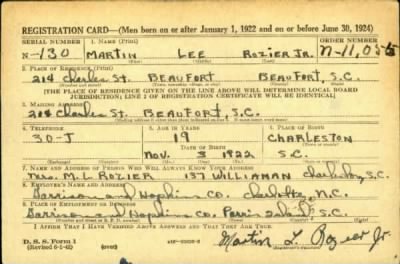 REGISTRATION CARD—(Men born on or after January 1, 1922 and on or before June 30, 1924)
SERIAL NUMBER 1. NAME (Print) ORDER NUMBER
N-130 MARTIN LEE ROZIER JR. N-11,055
(First) (Middle) (Last)
2. PLACE OF RESIDENCE (Print)
214 Charles St. BEAUFORT BEAUFORT, S.C.
[THE PLACE OF RESIDENCE GIVEN ON THE LINE ABOVE WILL DETERMINE LOCAL BOARD
JURISDICTION; LINE 2 OF REGISTRATION CERTIFICATE WILL BE IDENTICAL]
3. MAILING ADDRESS
214 Charles St. BEAUFORT, S.C.
4. TELEPHONE 5. AGE IN YEARS 6. PLACE OF BIRTH
30-J 19 CHARLESTON
DATE OF BIRTH
Nov. 3 1922 S.C.
7. NAME AND ADDRESS OF PERSON WHO WILL ALWAYS KNOW YOUR ADDRESS
Mrs. M.L. ROZIER 137 WILLIAMAN S.C.
8. EMPLOYER'S NAME AND ADDRESS
Garrison and Hopkins Co. Charlotte, N.C.
9. PLACE OF EMPLOYMENT OR BUSINESS
Garrison and Hopkins Co. S.C.
I AFFIRM THAT I HAVE VERIFIED ABOVE ANSWERS AND THAT THEY ARE TRUE.
D. S. S. Form 1
(Revised 6-9-42) (over)
Martin L. Rozier Jr.